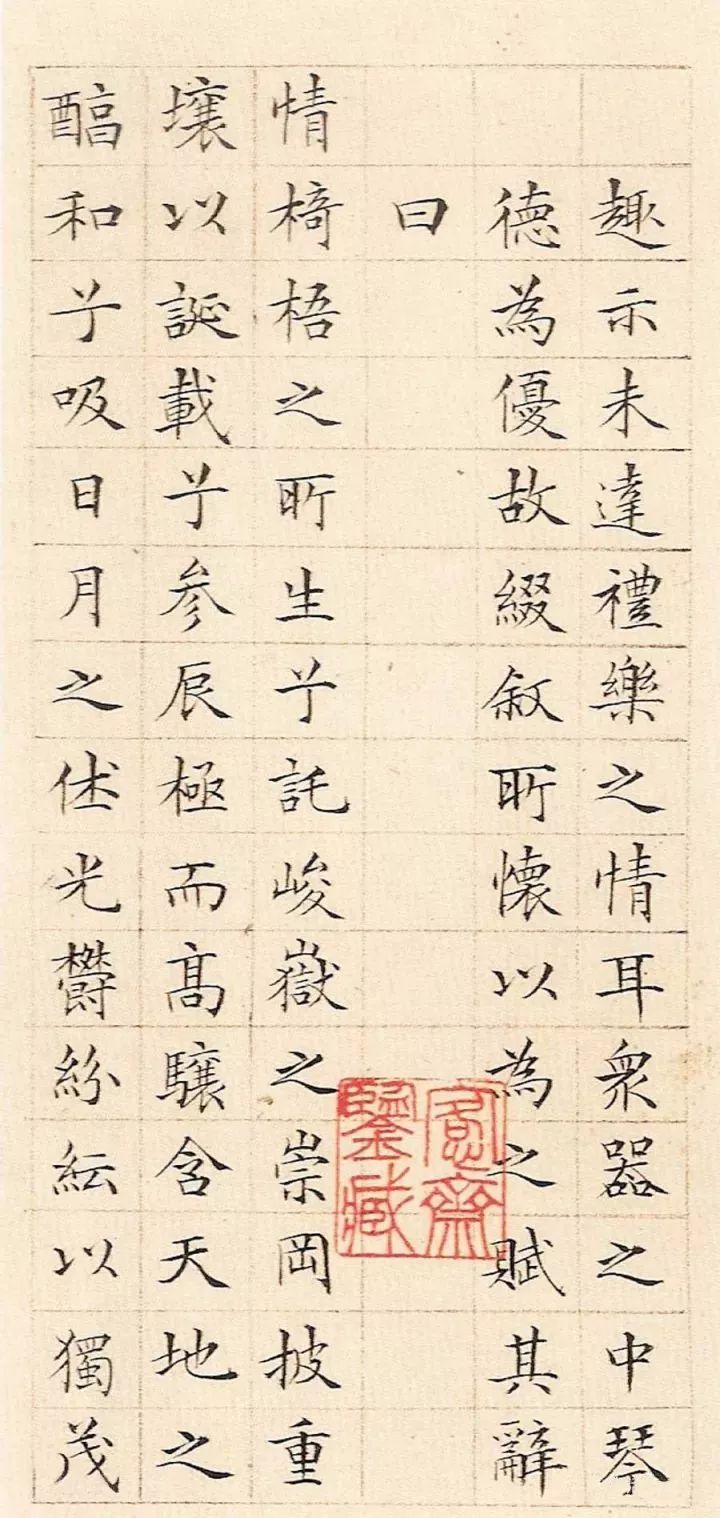 趣示未達禮樂之情耳眾器之中琴
德為優故綴敘所懷以為之賦其辭
曰
情椅梧之所生兮託峻嶽之崇岡披重
壤以誕載兮参辰極而髙驤含天地之
醕和兮吸日月之休光鬱紛紜以獨茂
愙齋
鑒藏